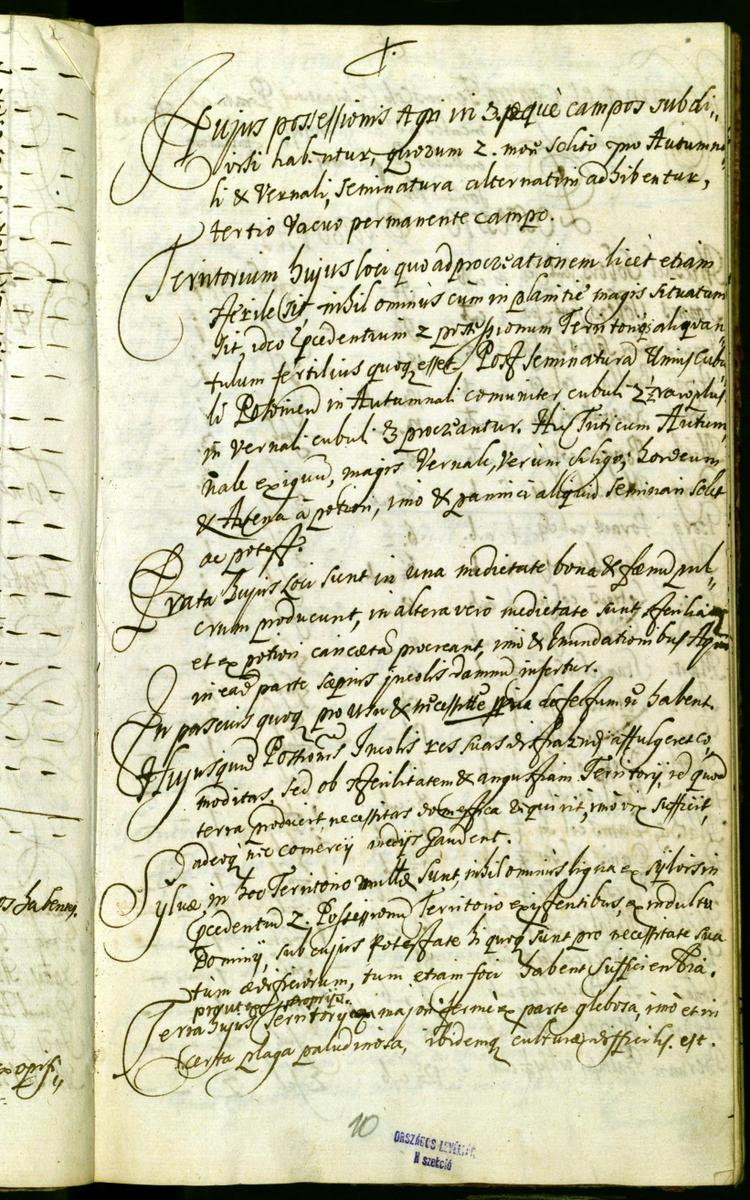 Hujus possessionis Agri in 3. aequè campos subdi„
visi habentur, quorum 2. more solito pro Autumna„
li & Vernali, seminatura alternatim adhibentur,
tertio Vacuo permanente campo.
Territorium hujus loci quo ad procreationem licèt etiam
sterile sit nihilominus cum in planitie magis situatum
sit, ideo praecedentium 2 possessionum Territorijs aliquan„
tulum fertilius quoque esset. Post seminaturam Unius Cubu„
li Posonien in Autumnali comuniter cubuli 2 raro plus
in Vernali cubuli 3 procreantur. Hic Triticum Autum„
nale exiguum, magis Vernale, Verum siligo, hordeum
& Avena à potiori, imò & pannici aliquid seminari solet
ac potest.
Prata hujus loci sunt in una medietate bona & faenum pul„
crum producunt, in altera verò medietate sunt sterilia
et ex potiori caricetum procreant, imò & Inundationibus Aquarum
in eadem parte saepius Incolis damnum infertur.
In pascuis quoque pro usu & necessitate defectum non habent.
Hujusque Possessionis Incolis res suas distrahendi affulgeret co„
moditas, sed ob sterilitatem & angustiam Territorij, id quod
terra producit, necessitas domestica exquirit, imò vix sufficit,
adeoque nec comercij medijs gaudent.
Sylvae in hoc Territorio nullae sunt, nihilominus ligna ex sylvis in
praecedentium 2. Possessionum Territorio existentibus, ex indultu
Dominij, sub cujus Potestate hi quoque sunt pro necessitate sua
tum aedificiorum, tum etiam foci habent sufficientia.
Terra hujus Territorij ex majori fermè parte glebosa, imò et in
certa plaga paludinosa, ibidemque culturae difficilis est.
10
ORSZÁGOS LEVÉLTÁR
N szekció